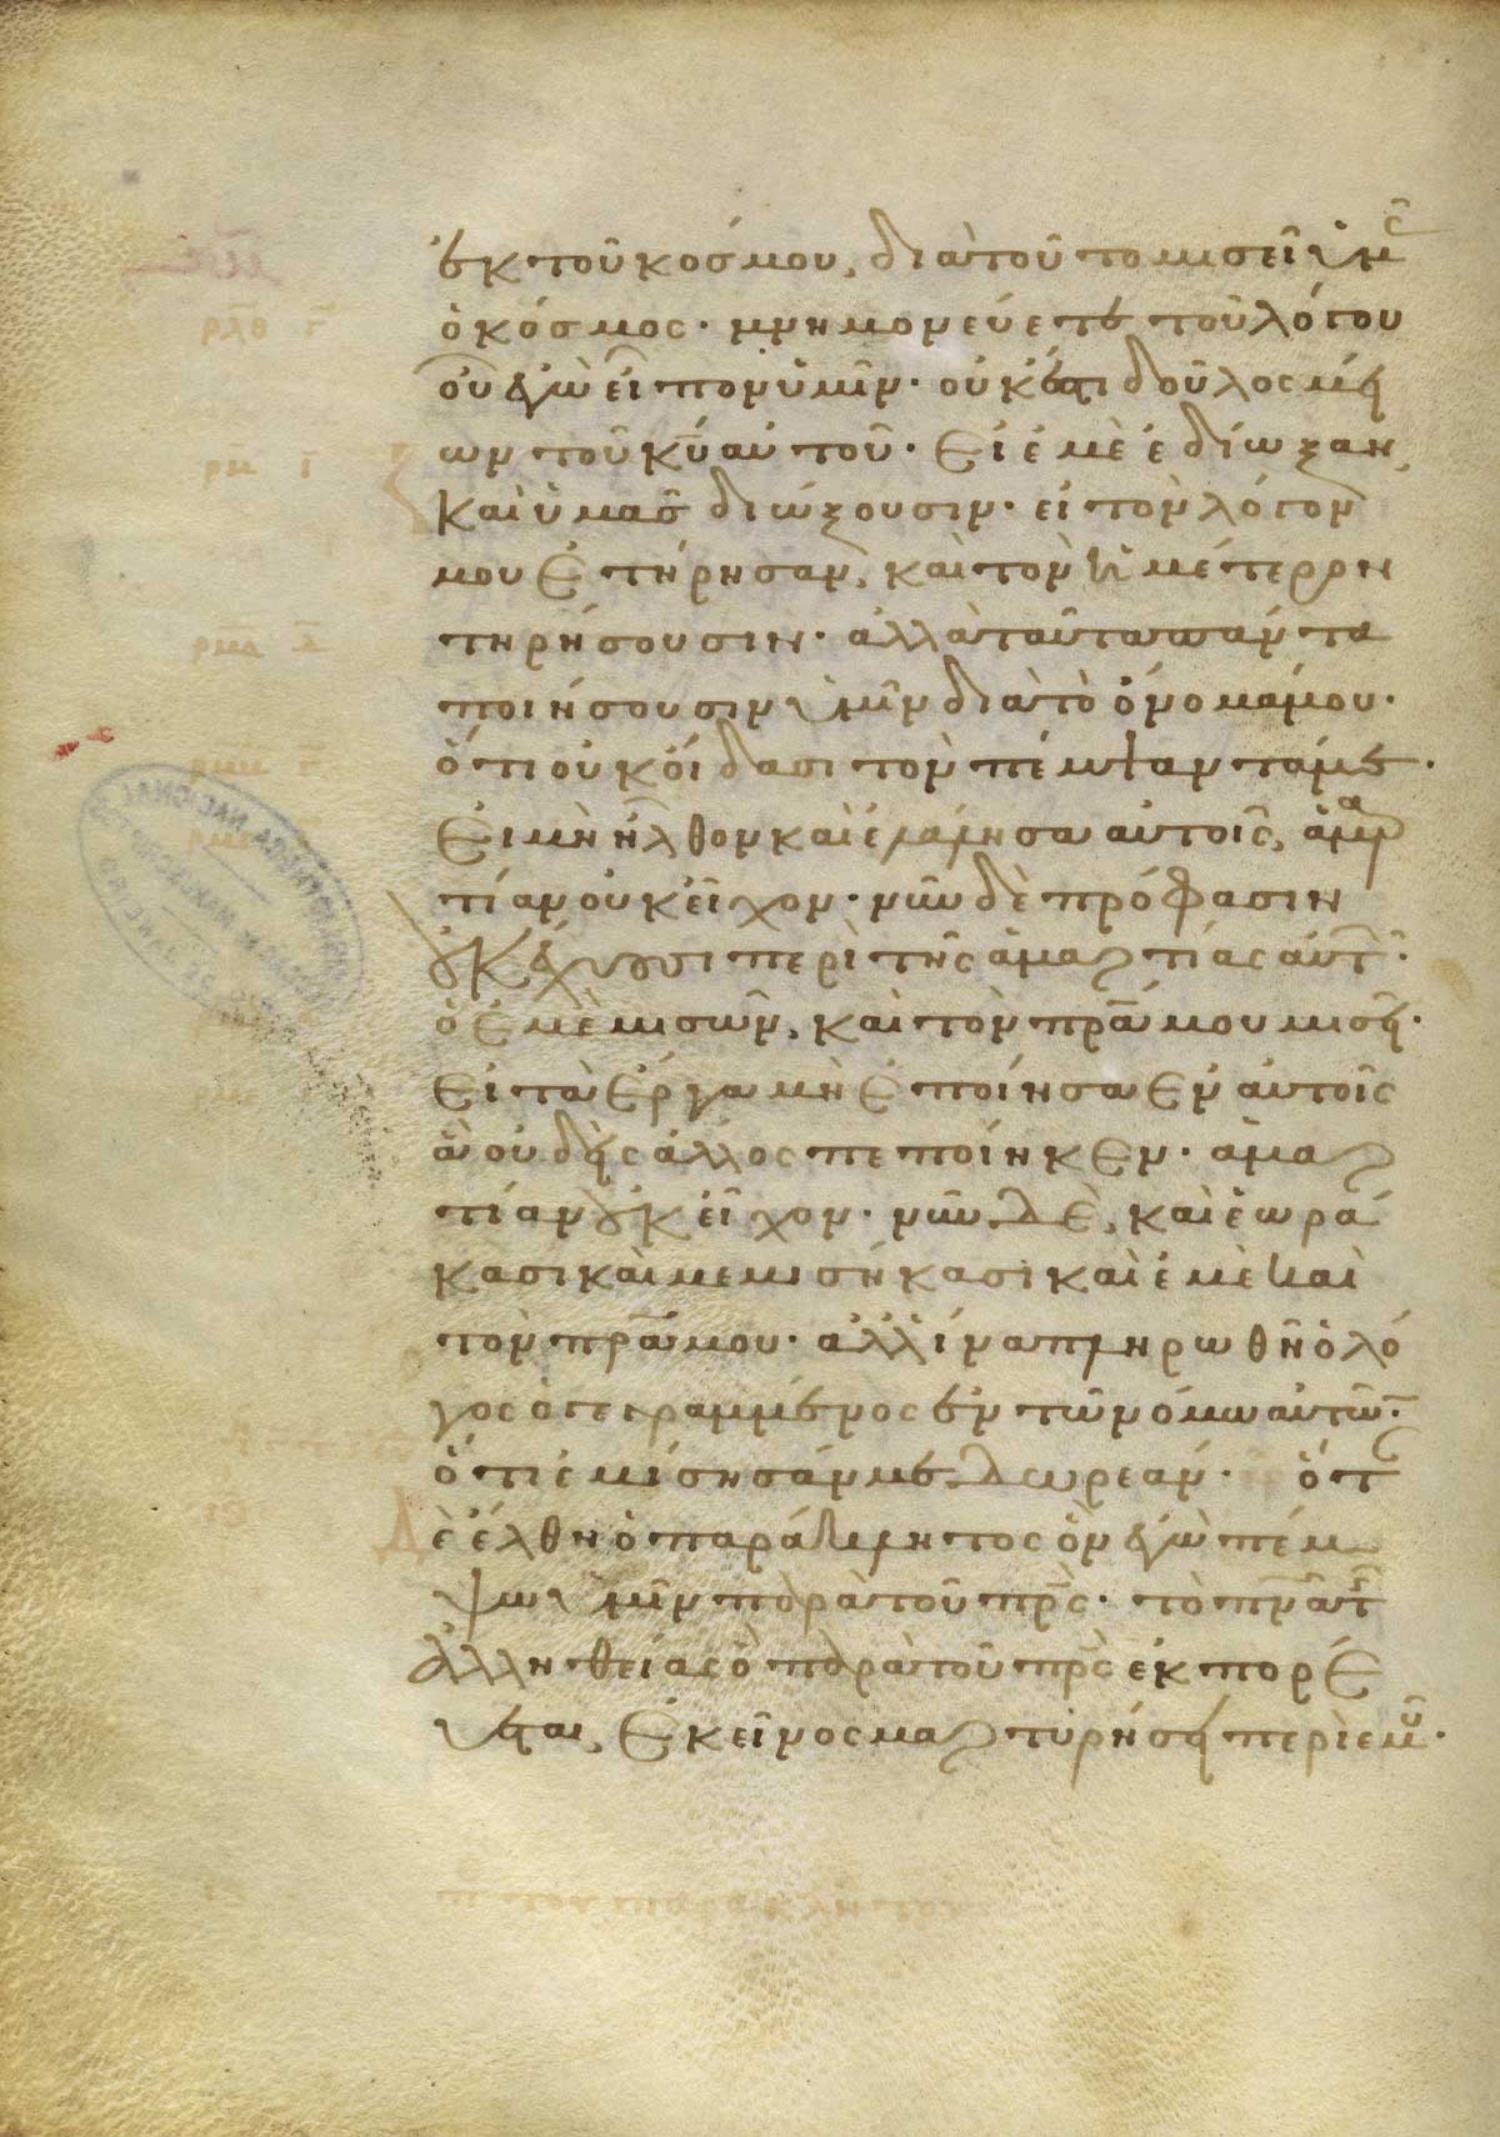 ἐκ τοῦ κόσμου, διὰ τοῦτο μισεῖ ὑμᾶς
ὁ κόσμος· μνημονεύετε τοῦ λόγου
οὗ ἐγὼ εἶπον ὑμῖν· οὐκ ἔστι δοῦλος μεί
ων τοῦ κυ αὐτοῦ· εἰ ἐμὲ ἐδίωξαν,
καὶ ὑμᾶς διώξουσιν· εἰ τὸν λόγον
μου ἐτήρησαν, καὶ τὸν ὑμέτερον
τηρήσουσιν· ἀλλὰ ταῦτα πάντα
ποιήσουσιν ὑμῖν διὰ τὸ ὄνομά μου·
ὅτι οὐκ οἴδασι τὸν πέμψαντά με·
εἰ μὴ ἦλθον καὶ ἐλάλησα αὐτοῖς, ἁμαρ
τίαν οὐκ εἶχον· νῦν δὲ πρόφασιν
οὐκ ἔχουσι περὶ τῆς ἁμαρτίας αὐτῶν·
ὁ ἐμὲ μισῶν, καὶ τὸν πρα μου μισεῖ·
εἰ τὰ ἔργα μὴ ἐποίησα ἐν αὐτοῖς
ἃ οὐδεὶς ἄλλος πεποίηκεν· ἁμαρ
τίαν οὐκ εἶχον· νῦν δὲ, καὶ ἑωρά
κασι καὶ μεμισήκασι καὶ ἐμὲ καὶ
τὸν πρα μου· ἀλλ' ἵνα πληρωθῆ ὁ λό
γος ὁ γεγραμμένος ἐν τῶ νόμω αὐτῶν·
ὅτι ἐμίσησάν με δωρεάν· ὅτ
ε ἔλθη ὁ παράκλητος ὃν ἐγὼ πέμ
ψω ὑμῖν παρὰ τοῦ πρς· τὸ πνα τῆς
ἀλληθείας ὃ παρὰ τοῦ πρς ἐκπορε
ύεται, ἐκεῖνος μαρτυρήσει περὶ ἐμοῦ·